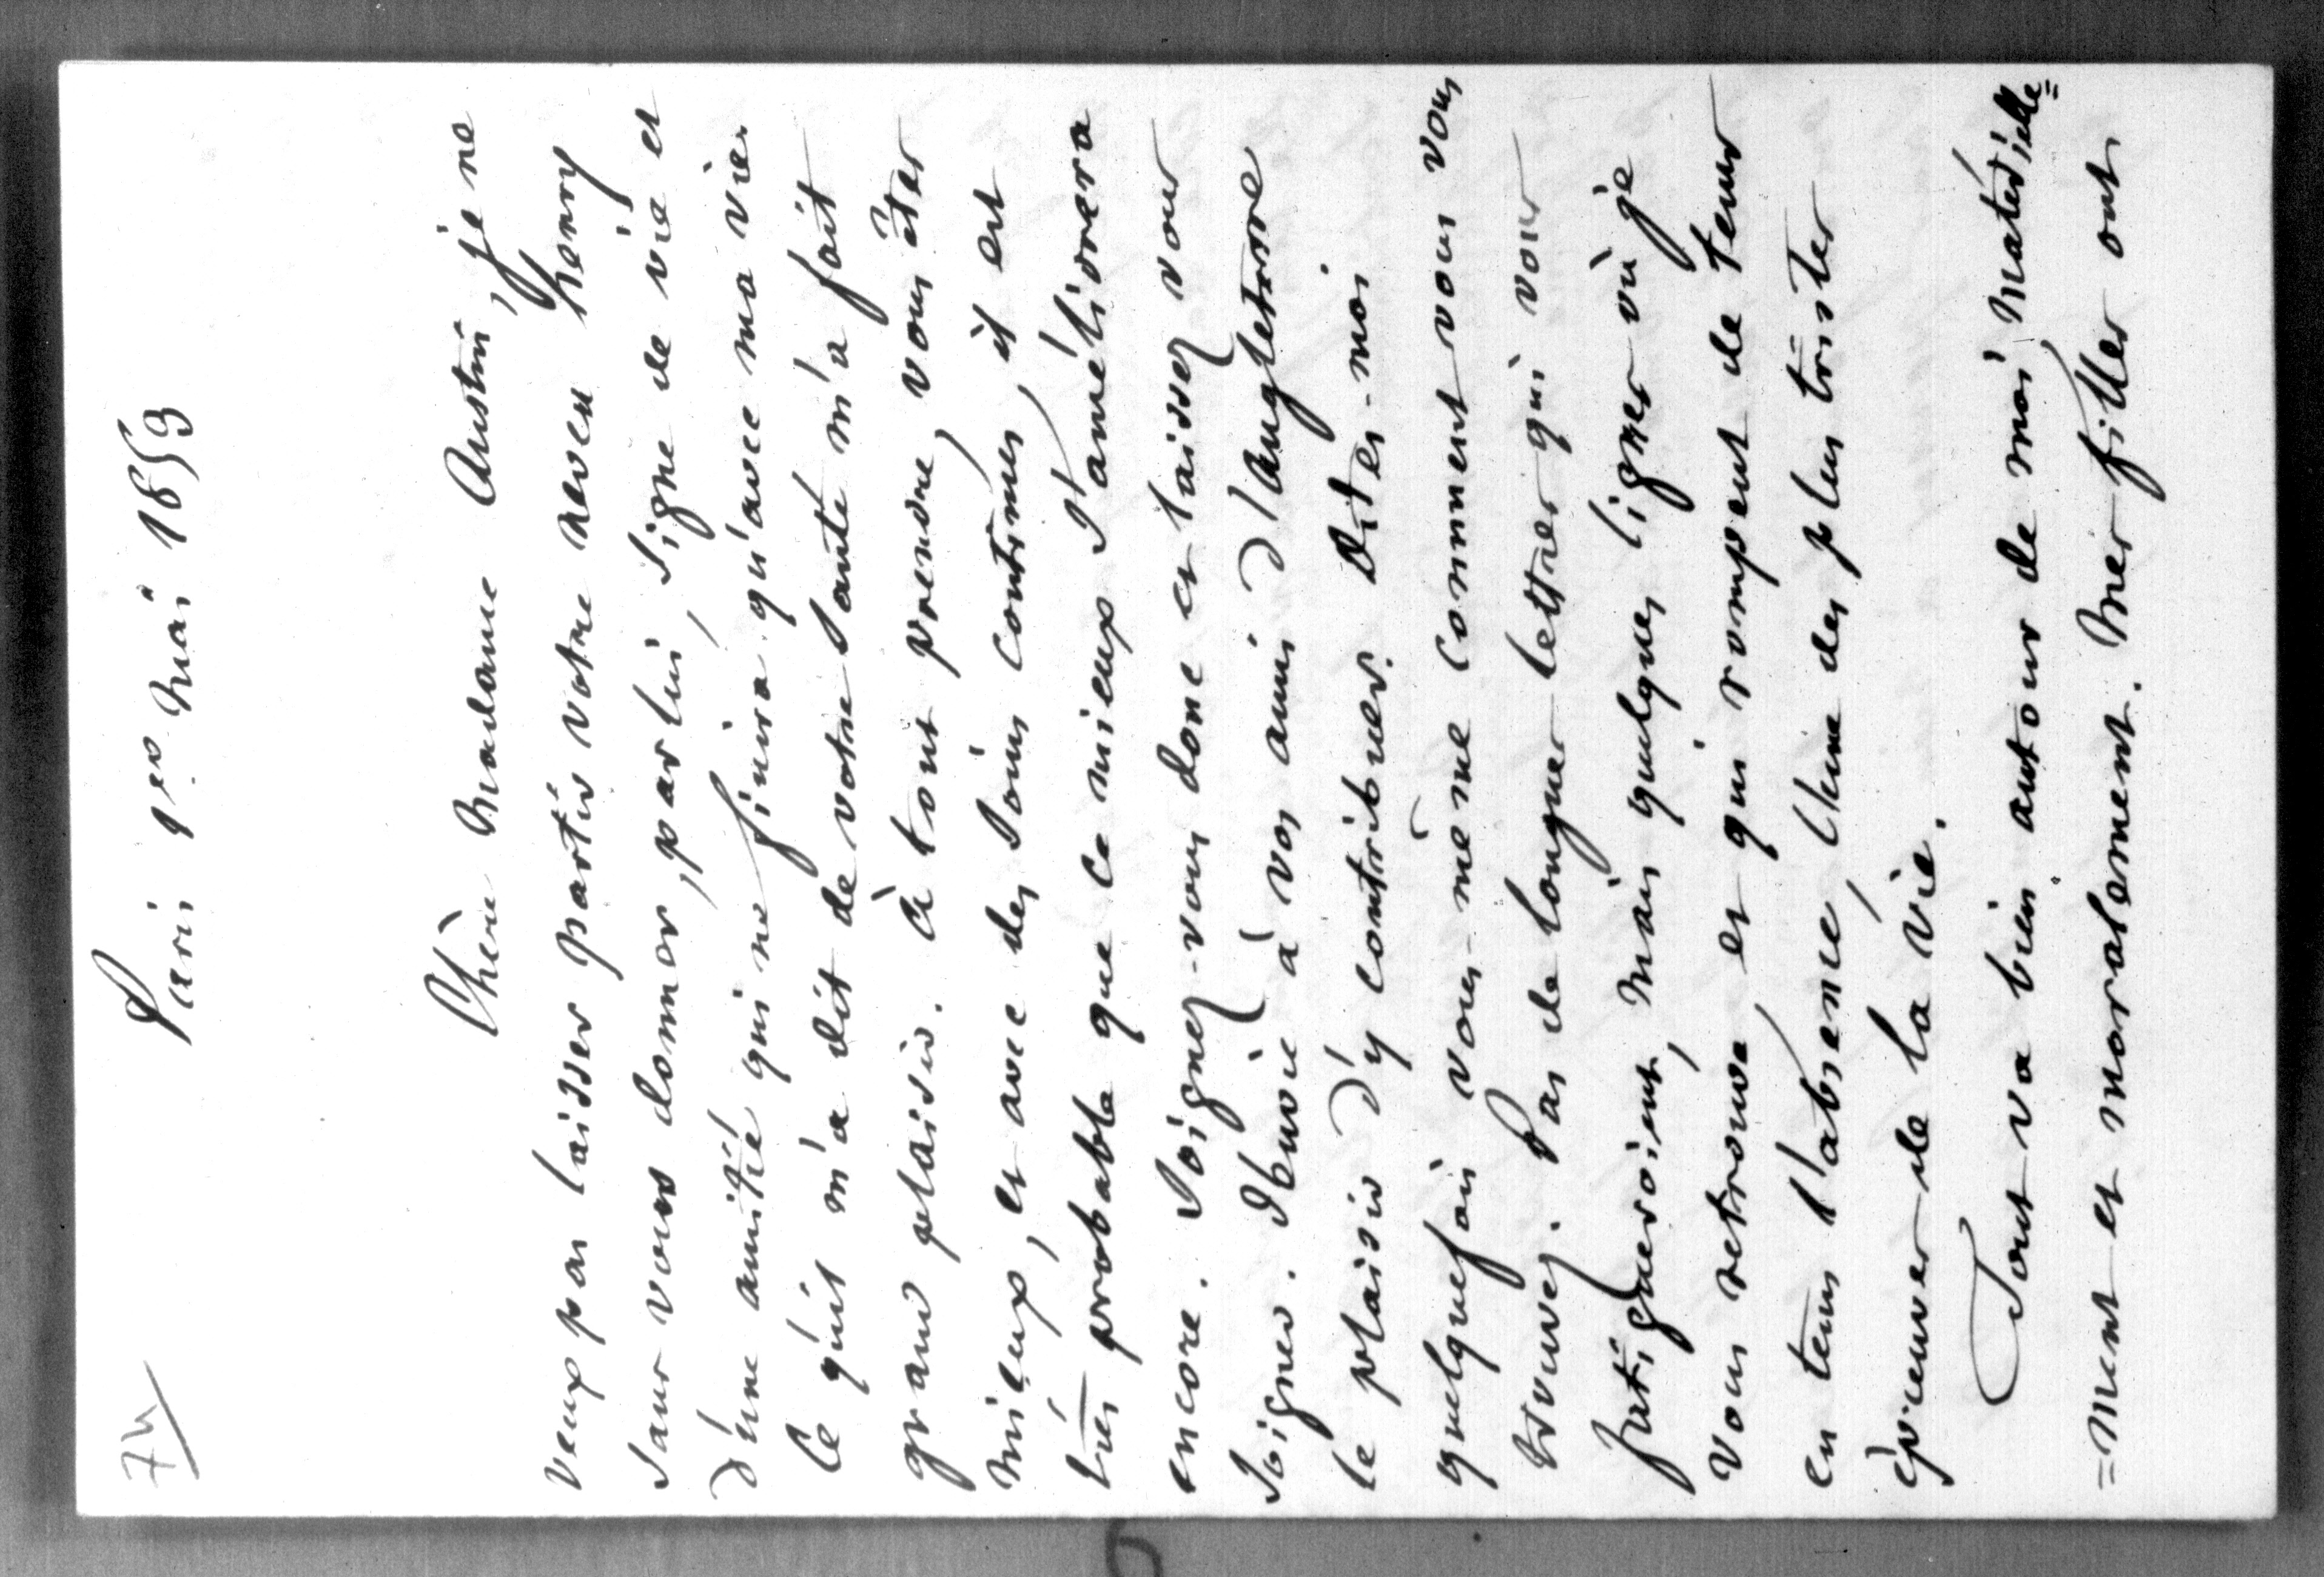 74
Paris 1er Mai 1853
Chère Madame Austin, je ne
veux pas laisser partir votre neveu Henry
sans vous donner, par lui, signe de vie et
d'une amitié qui ne finira qu'avec ma vie.
Ce qu'il m'a dit de votre santé m'a fait
grand plaisir. A tout prendre, vous êtes
mieux, et avec des soins continus, il est
très probable que ce mieux s'améliorera
encore. Soignez-vous donc et laissez vous
soigner. J'envie à vos amis d'Angleterre
le plaisir d'y contribuer. Dites-moi
quelquefois vous-même comment vous vous
trouvez. Pas de longues lettres qui vous
fatigueroient, mais quelques lignes où je
vous retrouve et qui rompent de tems
en tems l'absence, l'une des plus tristes
épreuves de la vie.
Tout va bien autour de moi, matérielle=
=ment et moralement. Mes filles ont